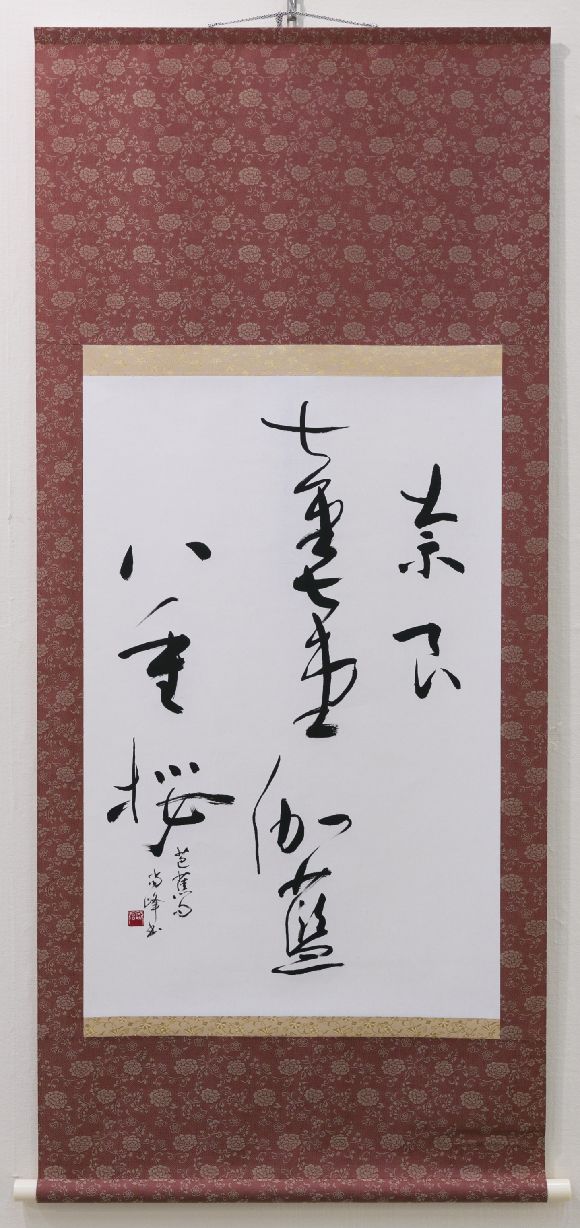 奈良
七重七堂伽藍
八重桜
芭蕉句
尚峰書